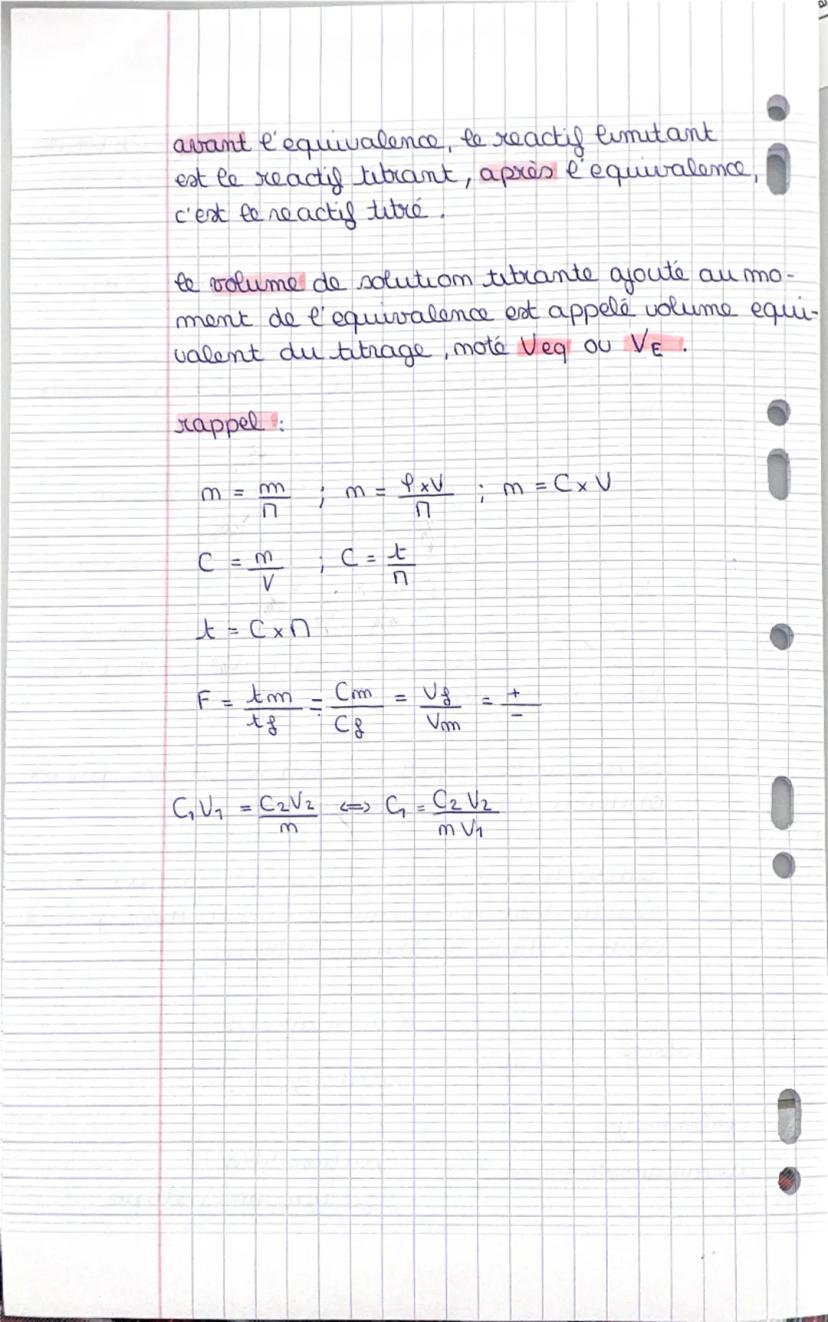 avant l'equivalence, le reactif limitant
est le reactif titrant, après l'equivalence,
c'est le reactif titré.
le volume de solution titrante ajouté au mo-
ment de l'equivalence est appelé volume equi-
valent du titrage, noté Veq ou VE.
rappel :
n = m/M ; n = ρ×V/M ; n = C×V
C = n/V ; C = t/M
t = C×M
F = tm/tf = Cm/Cf = Vf/Vm = +/-
C1V1 = C2V2/n <=> C1 = C2V2/nV1